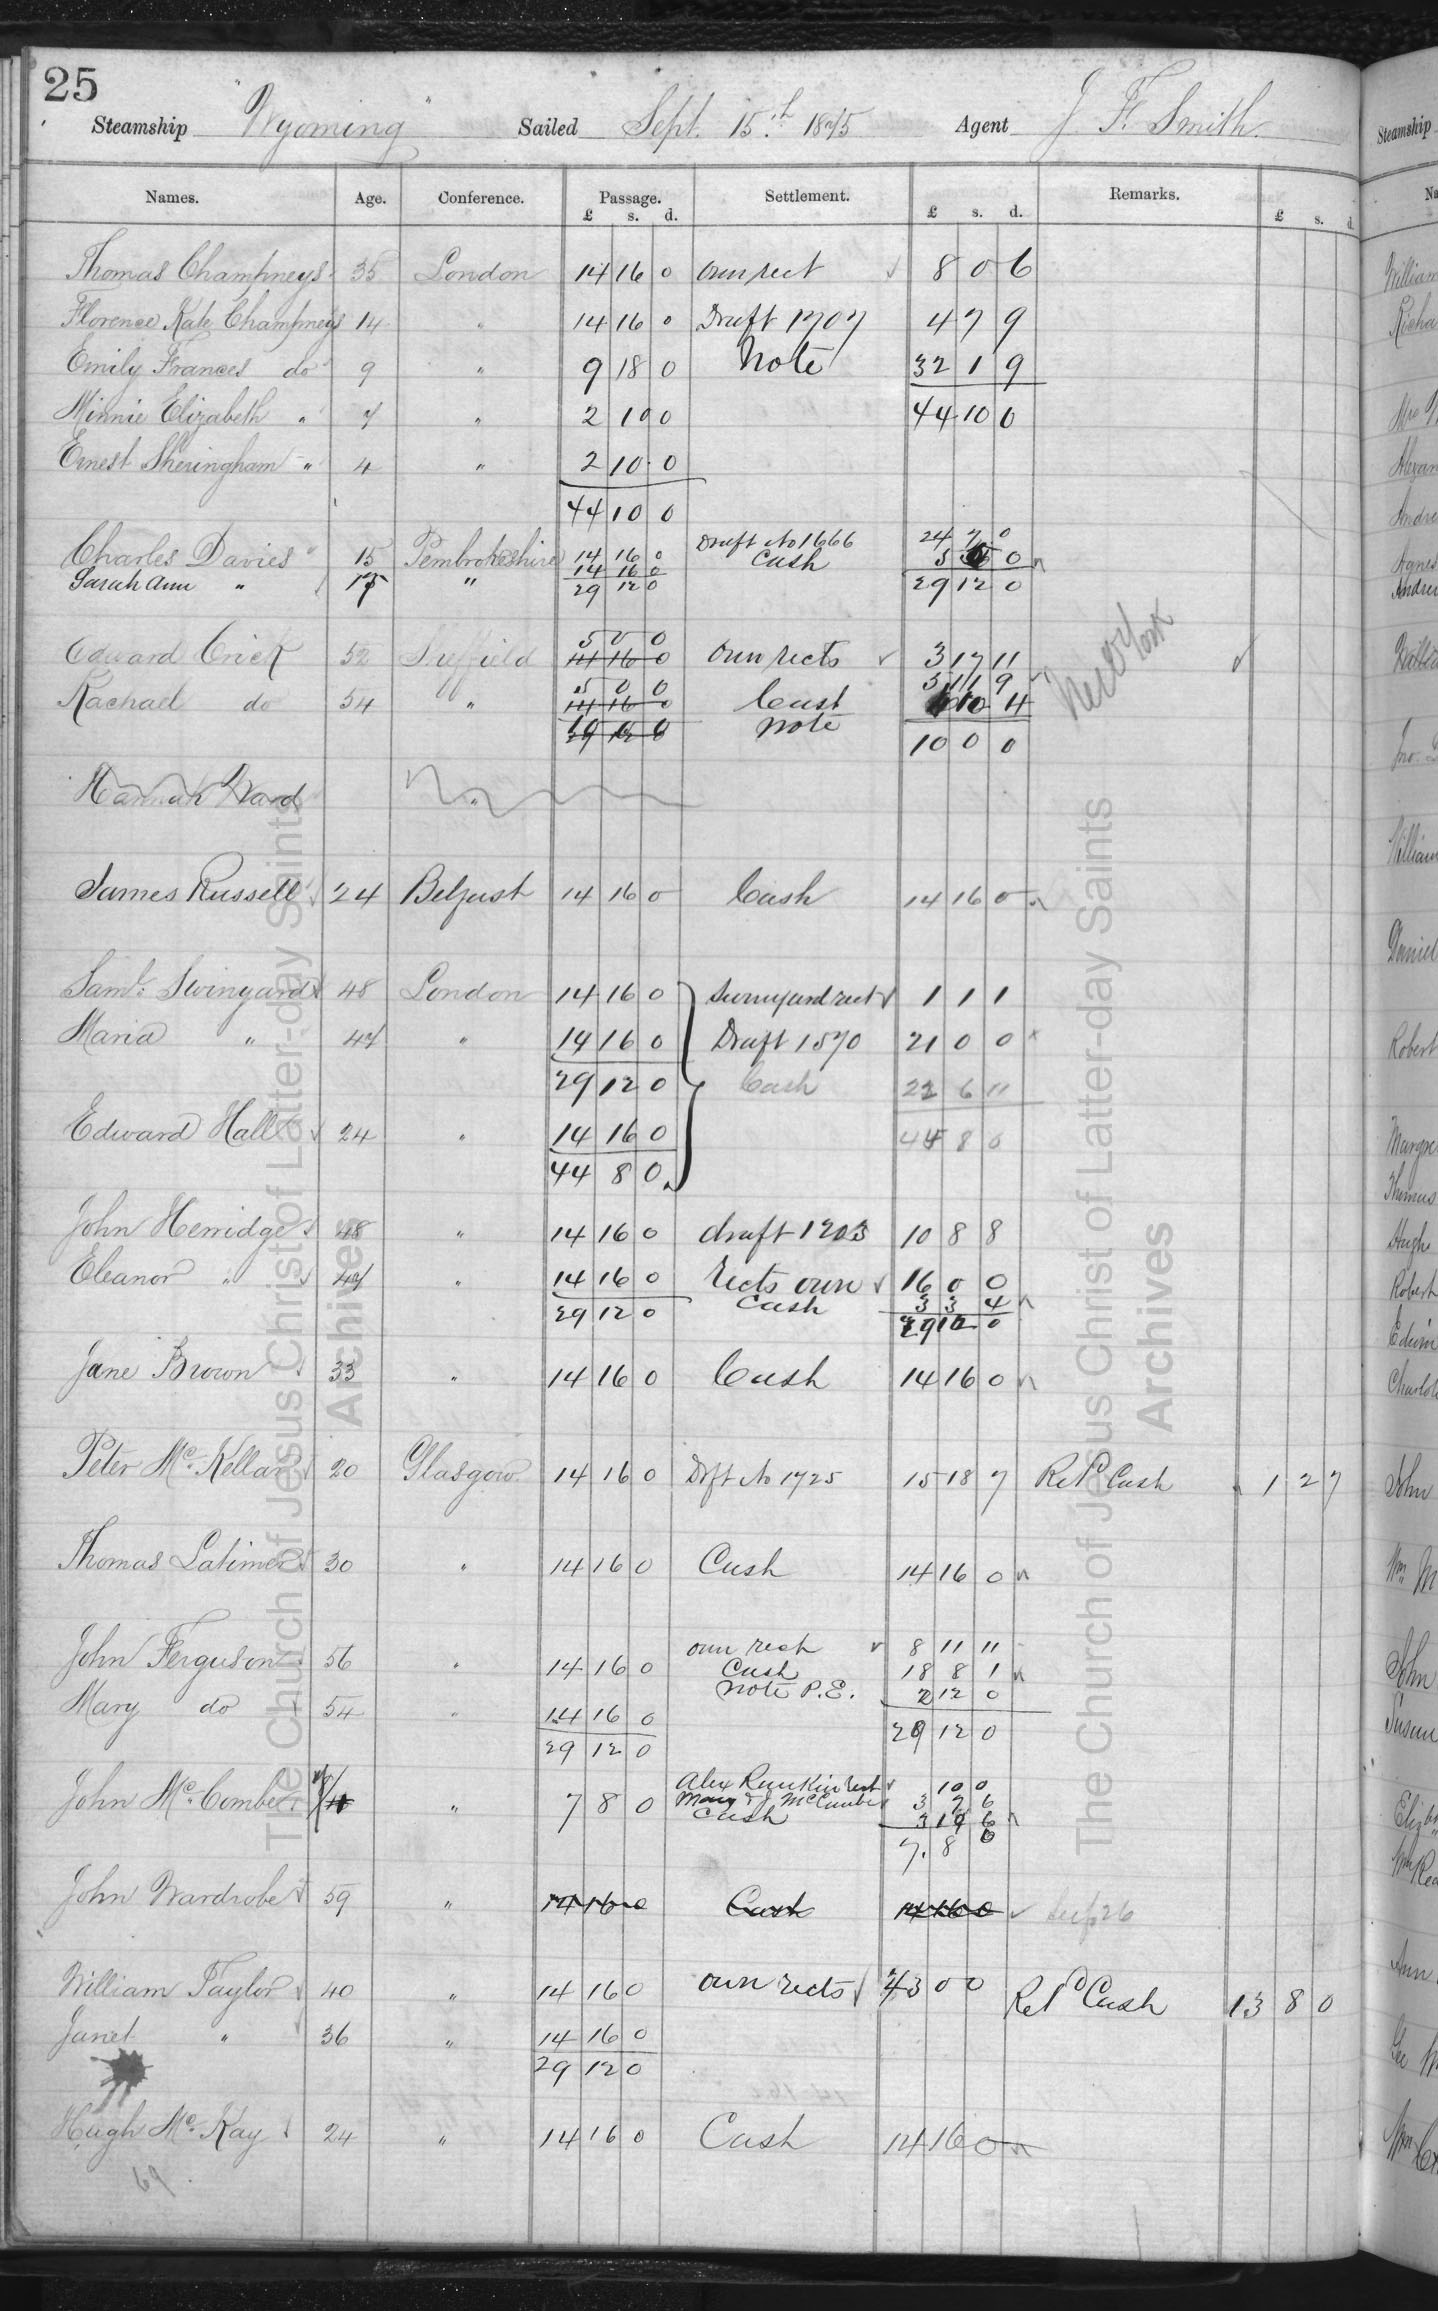 25
Steamship "Wyoming" Sailed Sept. 15th 1875 Agent J. F. Smith
Names. Age. Conference. Passage. £ s. d. Settlement. £ s. d. Remarks. £ s. d.
Thomas Champneys 35 London 14 16 0 own rect 8 0 6
Florence Kate Champneys 14 " 14 16 0 Draft 1707 4 7 9
Emily Frances do 9 " 9 18 0 Note 32 1 9
Minnie Elizabeth " 7 " 2 10 0 44 10 0
Ernest Sheringham " 4 " 2 10 0
44 10 0
Draft No 1666 24 7 0
Charles Davies 15 Pembrokeshire 14 16 0 Cash 5 5 0
14 16 0
Sarah Ann " 17 " 29 12 0 29 12 0
5 0 0
Edward Crick 52 Sheffield 14 16 0 own rects 3 17 11
5 0 0 3 11 9
Rachael do 54 " 14 16 0 Cash 10 4
10 0 0 Note
29 12 0 10 0 0
New York
Hannah Ward "
James Russell 24 Belfast 14 16 0 Cash 14 16 0
Saml. Swinyard 48 London 14 16 0 Swinyard rect 1 1 1
Maria " 47 " 14 16 0 Draft 1570 21 0 0
29 12 0 Cash 22 6 11
Edward Hall 24 " 14 16 0 44 8 0
44 8 0
John Herridge 48 " 14 16 0 draft 1703 10 8 8
Eleanor " 47 " 14 16 0 rects own 16 0 0
Cash 3 3 4
29 12 0 29 12 0
Jane Brown 33 " 14 16 0 Cash 14 16 0
Peter Mc Kellar 20 Glasgow 14 16 0 Dft No 1725 15 18 7 Retd Cash 1 2 7
Thomas Latimer 30 " 14 16 0 Cash 14 16 0
own rect 8 11 11
John Ferguson 56 " 14 16 0 Cash 18 8 1
Note P.E. 2 12 0
Mary do 54 " 14 16 0 29 12 0
29 12 0
Alex Rankin rect 10 0
John Mc Comber " 7 8 0 Mary & J. McCumber 3 7 6
Cash 3 10 6
7. 8 0
John Wardrobe 59 " 14 16 0 Cash 14 16 0 26
William Taylor 40 " 14 16 0 own rects 43 0 0 Retd Cash 13 8 0
Janet " 36 " 14 16 0
29 12 0
Hugh Mc Kay 24 " 14 16 0 Cash 14 16 0
69
The Church of Jesus Christ of Latter-day Saints
Archives
The Church of Jesus Christ of Latter-day Saints
Archives
Steamship